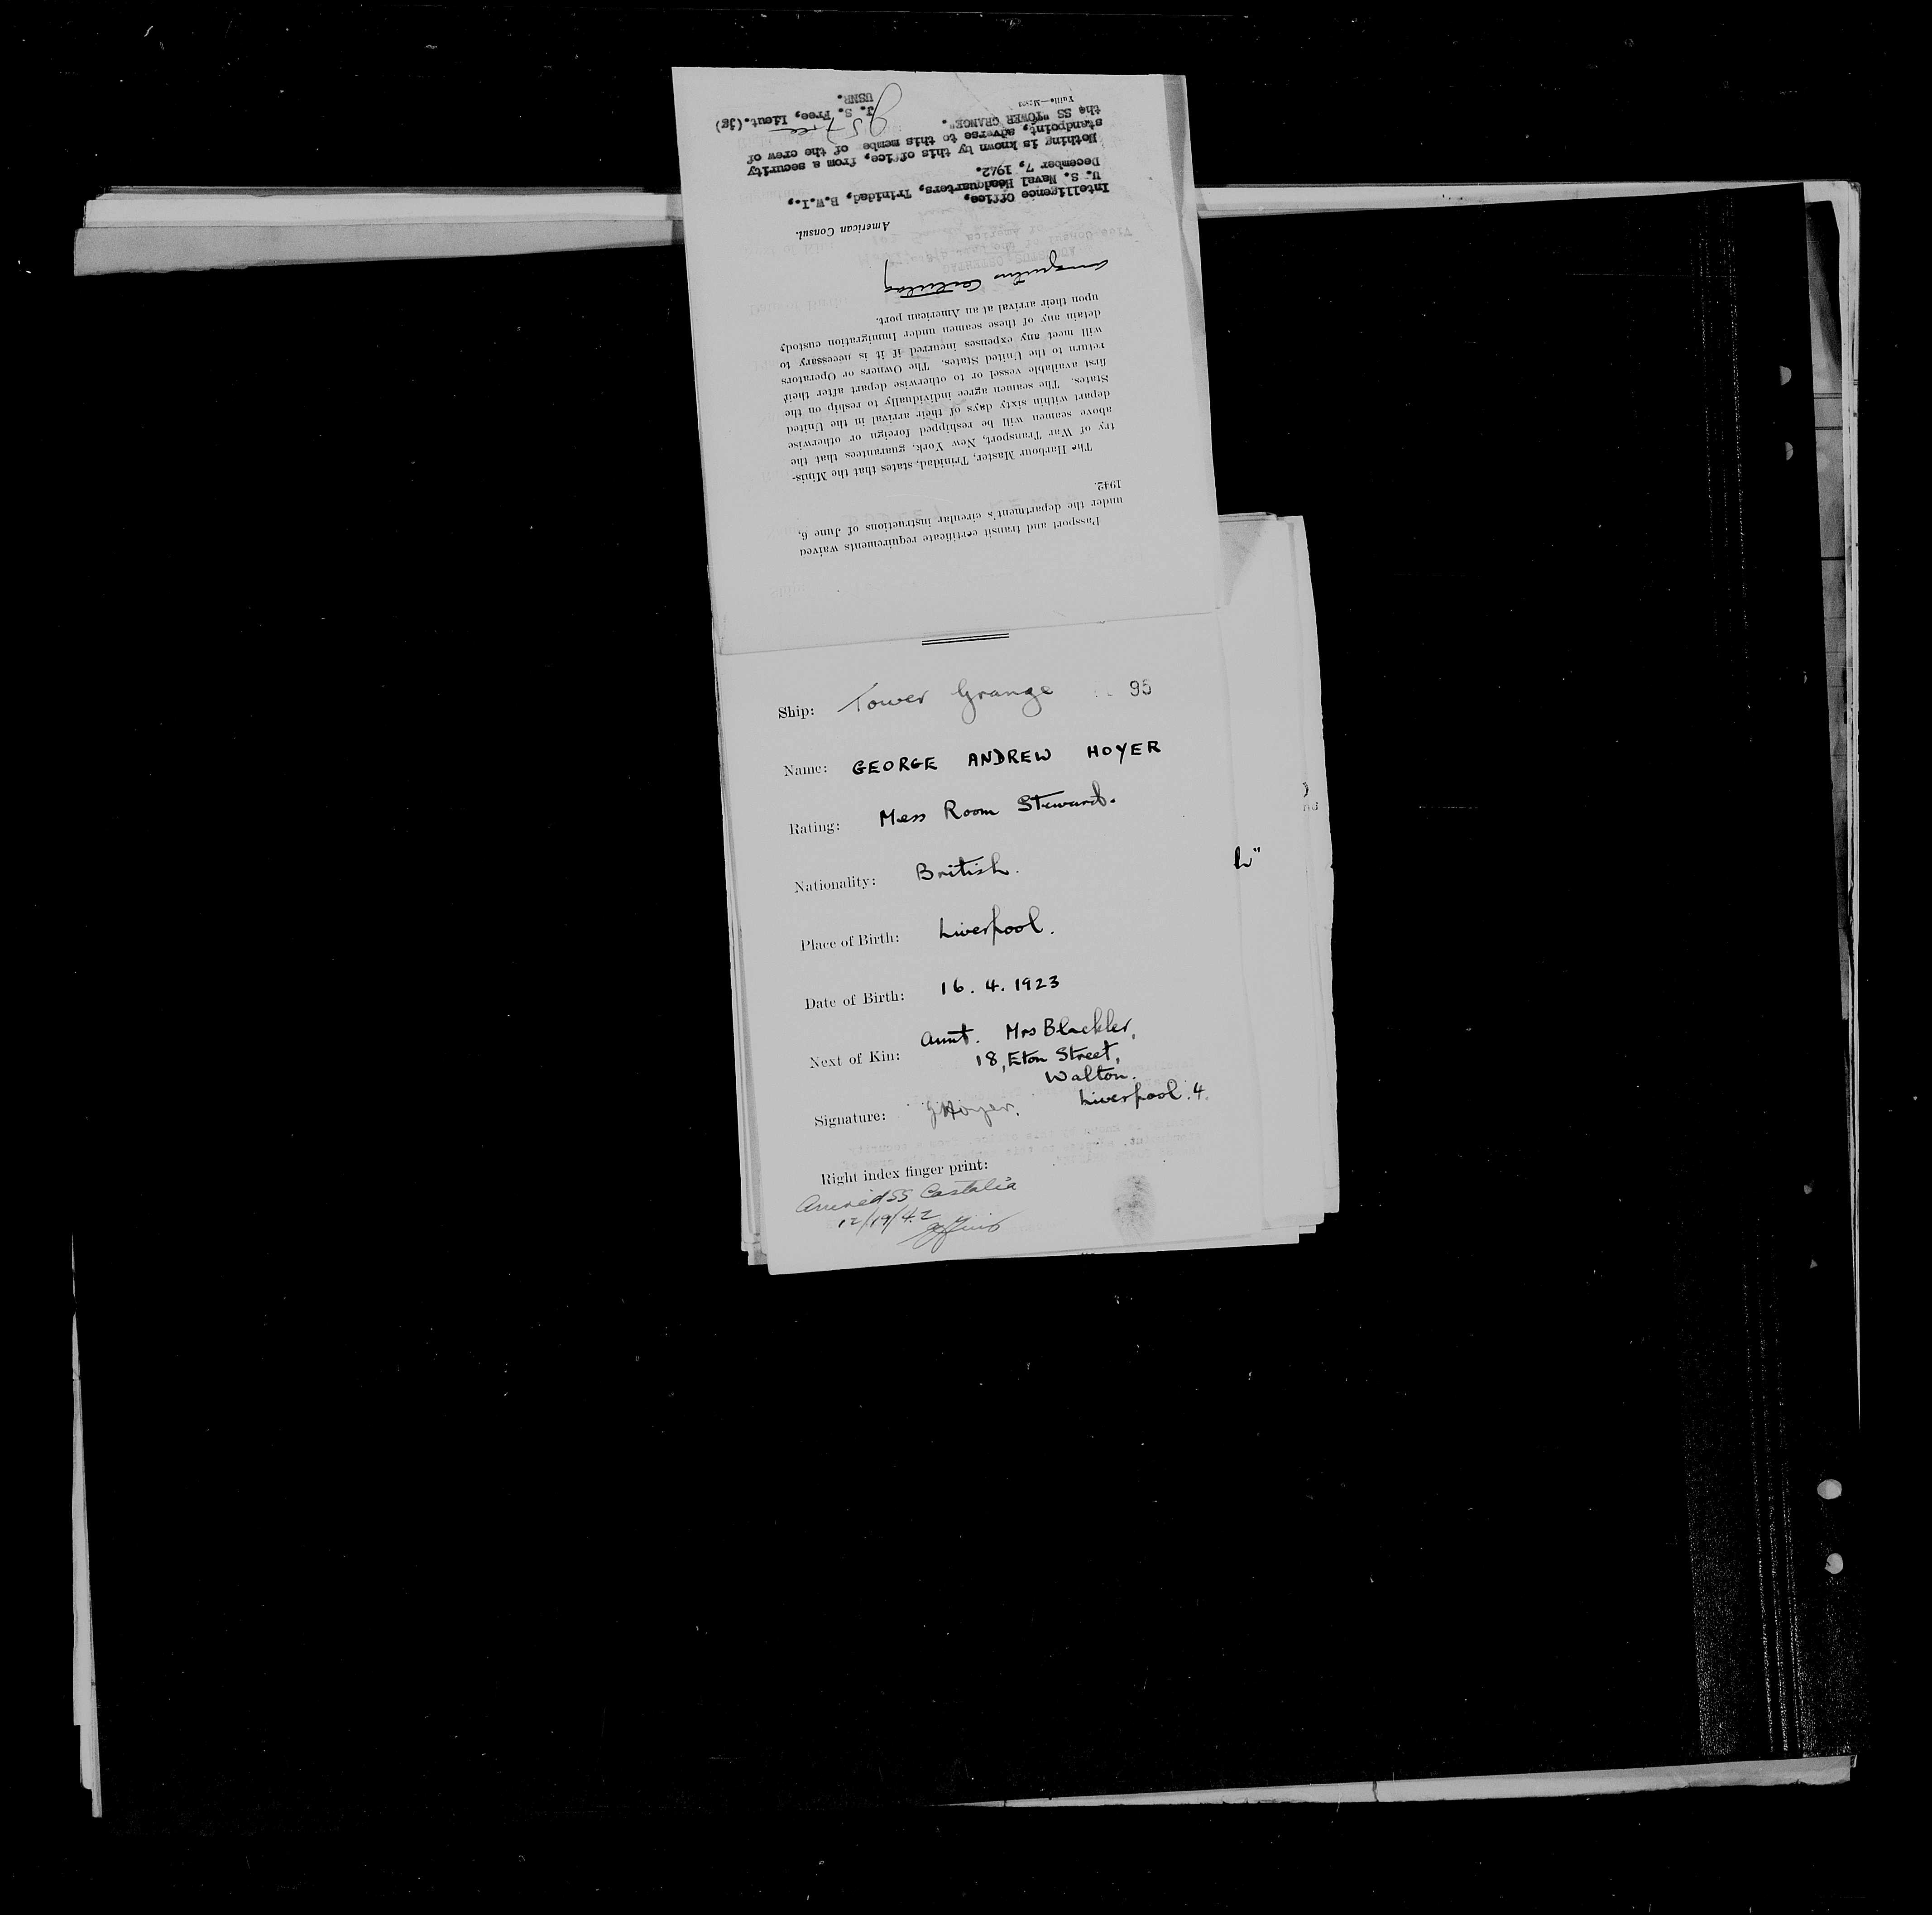 Passport and transit certificate requirements waived
under the department's circular instructions of June 6,
1942.
The Harbour Master, Trinidad, states that the Minis-
try of War Transport, New York, guarantees that the
above seamen will be reshipped foreign or otherwise
depart within sixty days of their arrival in the United
States. The seamen agree individually to reship on the
first available vessel or to otherwise depart after their
return to the United States. The Owners or Operators
will meet any expenses incurred if it is necessary to
detain any of these seamen under Immigration custody
upon their arrival at an American port.
American Consul.
Intelligence Office,
U. S. Naval Headquarters, Trinidad, B.W.I.,
December 7, 1942.
Nothing is known by this office, from a security
standpoint, adverse to this membe of the crew of
the SS "TOWER GRANGE".
J S Free
J. S. Free, Lieut.(jg)
USNR.
Ship: Tower Grange 95
Name: GEORGE ANDREW HOYER
Rating: Mess Room Steward.
Nationality: British.
Place of Birth: Liverpool.
Date of Birth: 16. 4. 1923
Next of Kin: Aunt. Mrs Blackler,
18, Eton Street,
Walton.
Liverpool. 4.
Signature: G Hoyer.
Right index finger print:
Arrived SS Castalia
12/19/42